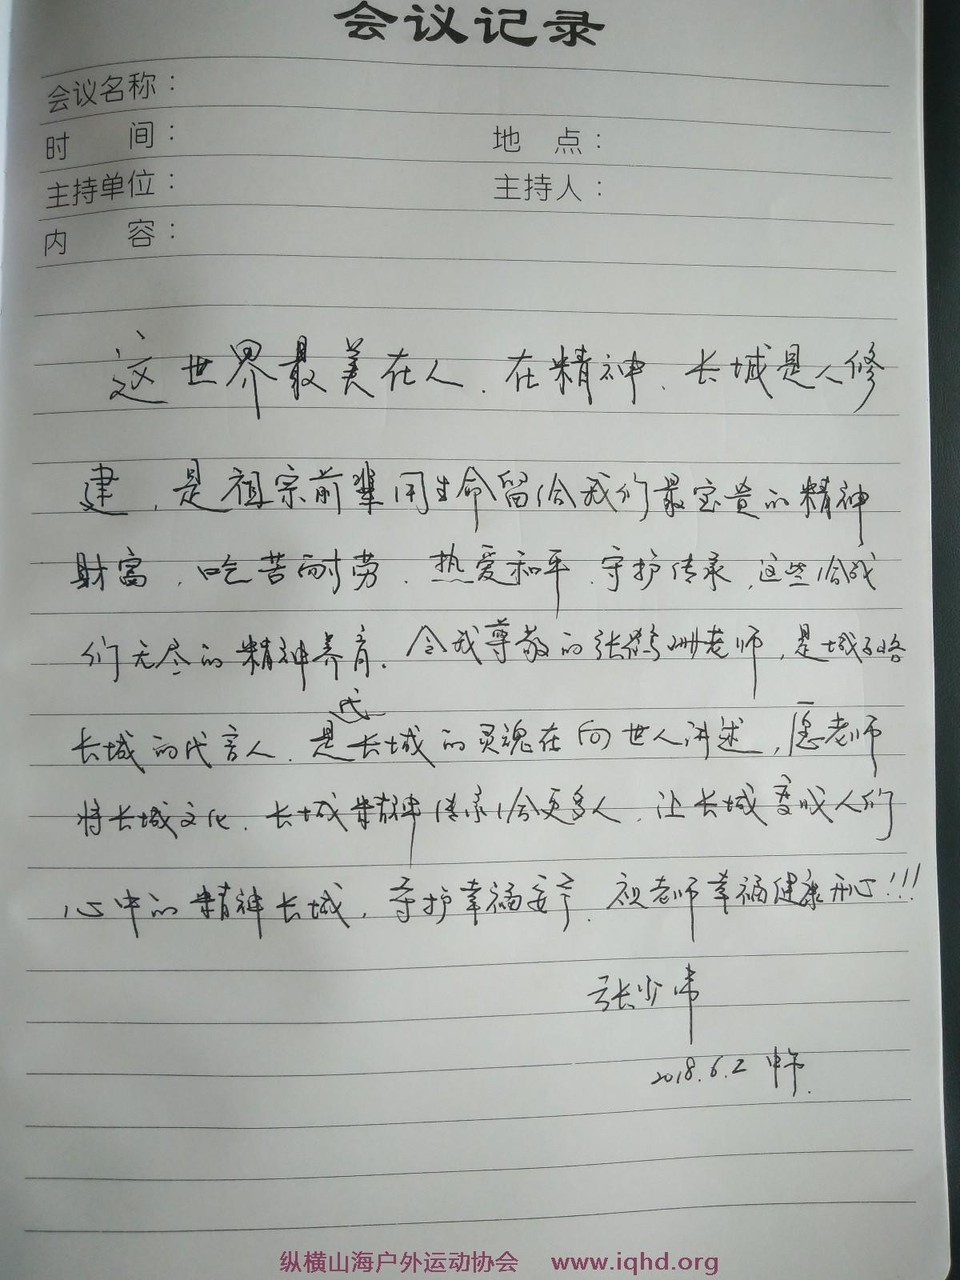 会议记录
会议名称：
时 间： 地 点：
主持单位： 主持人：
内 容：
这世界最美在人、在精神、长城是人修
建，是祖宗前辈用生命留给我们最宝贵的精神
财富、吃苦耐劳、热爱和平、守护传承、这些给我
们无尽的精神养育。令我尊敬的张鹤珊老师，是城子峪
长城的代言人、是这长城的灵魂在向世人讲述，愿老师
将长城文化、长城精神传承给更多人、让长城变成人们
心中的精神长城，守护幸福安宁、祝老师幸福健康开心!!!
张少伟
2018.6.2 中午.
纵横山海户外运动协会 www.iqhd.org